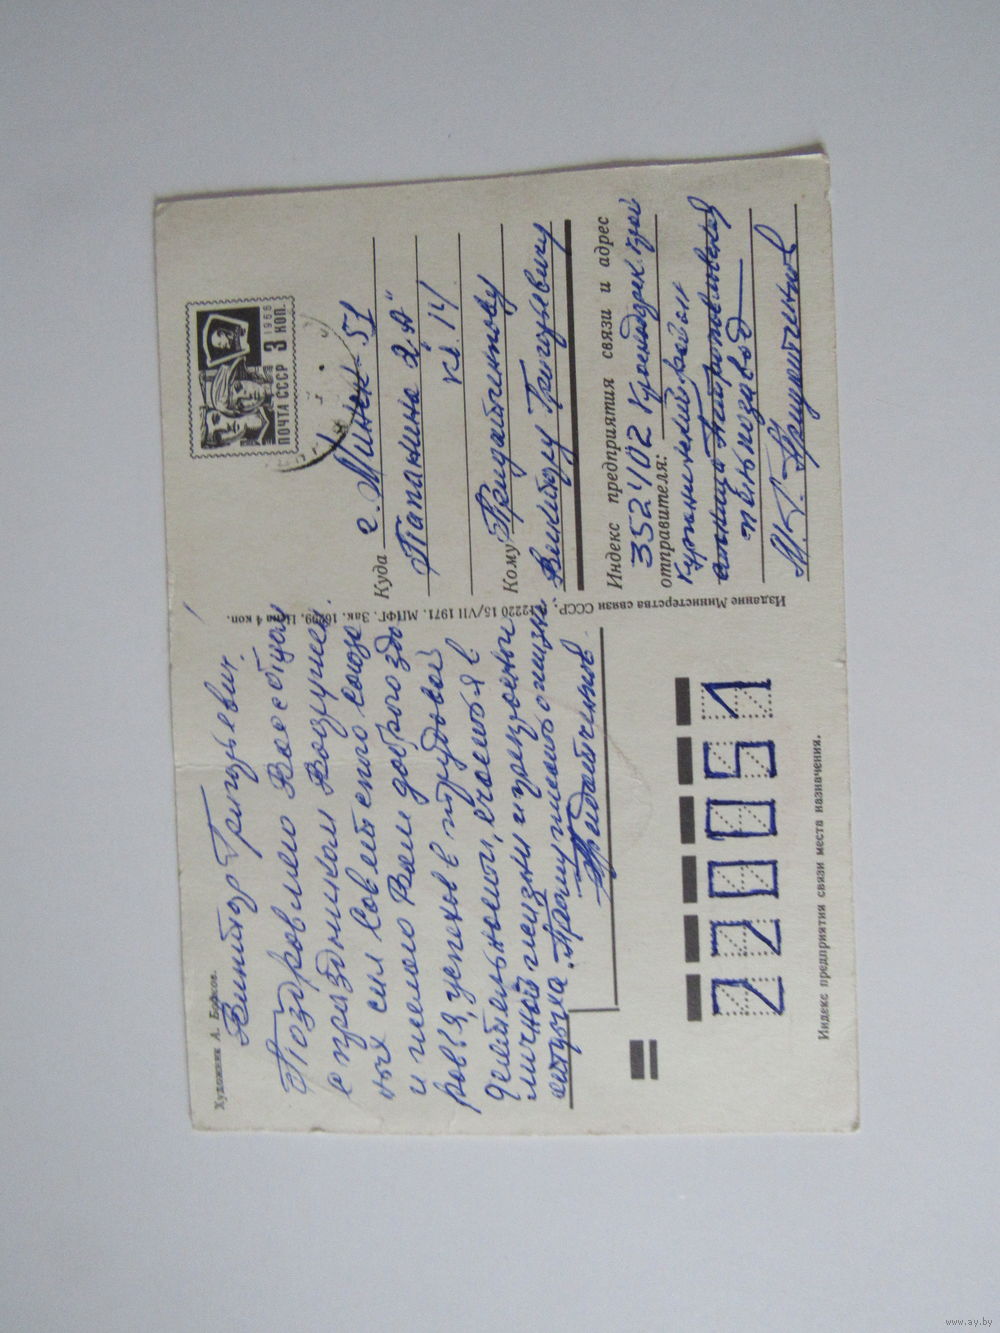 Художник А. Бойков.
Виктор Григорьевич!
Поздравляю Вас
с праздником Воздушно
ных сил Советского союза
и желаю Вам доброго здо
ровья, успехов в трудовой
деятельности, счастья в
личной жизни и
Прошу писать о жизни.
ПОЧТА СССР 3 КОП.
1966
Куда г. Минск-51
Папанина 2 "А"
кв. 14
Кому Придатченкову
Виктору Григорьевичу
Индекс предприятия связи и адрес
отправителя:
352402 Краснодарск. край
Курганинский район
станица Петропавловская
пенькозавод
М. Г. Придатченков
Издание Министерства связи СССР.
15/VII 1971. МПФГ. Зак. Цена 4 коп.
220051
Индекс предприятия связи места назначения.
www.ay.by